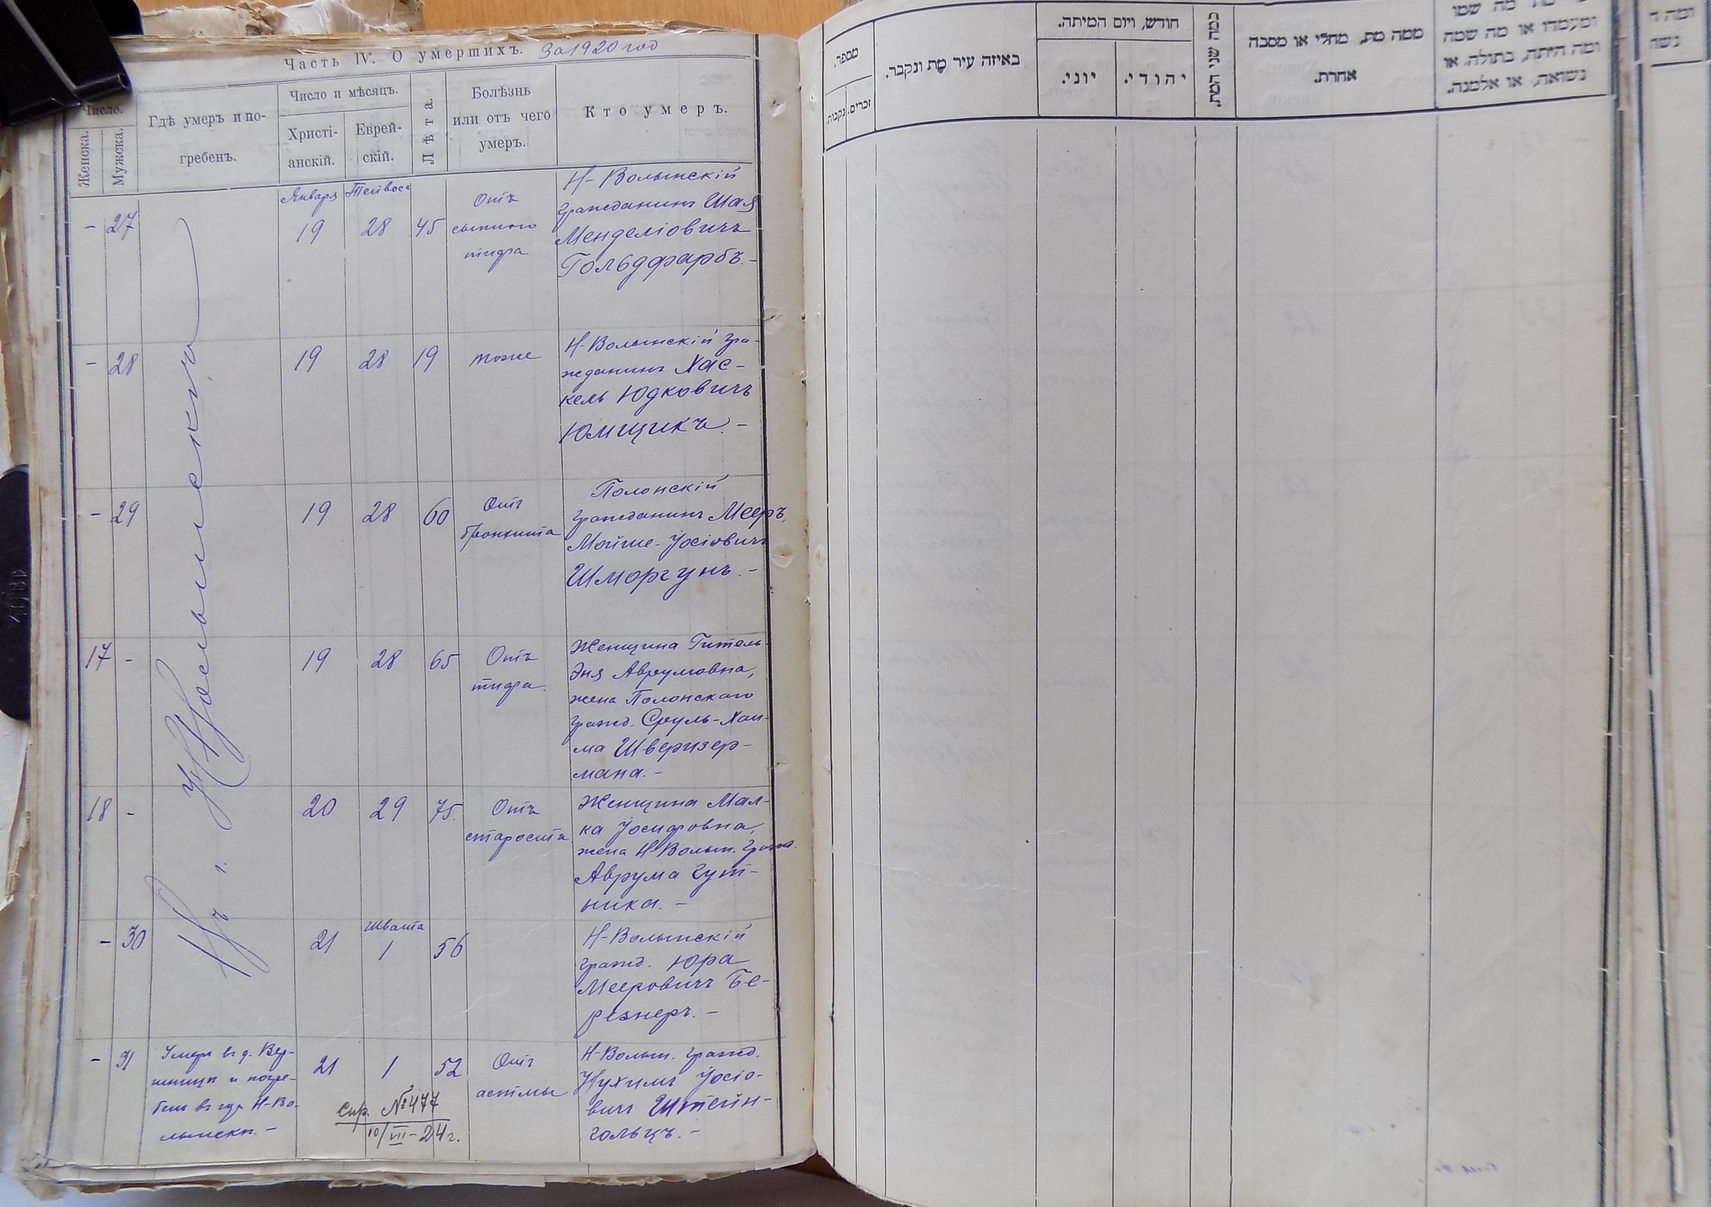 Часть IV. О умершихъ. За 1920 год
Число.
Женска.
Мужска.
Гдѣ умеръ и по-
гребенъ.
Число и мѣсяцъ.
Христі-
анскій.
Еврей-
скій.
Лѣта.
Болѣзнь
или отъ чего
умеръ.
Кто умеръ.
Въ г. Нововолынскѣ
- 27
Января Тейвеса
19 28 45
Отъ
сыпного
тифа
Н-Волынскій
гражданинъ Шая
Менделіовичъ
Гольдфарбъ.-
- 28 19 28 19 тоже
Н-Волынскій гра-
жданинъ Хас-
кель Юдковичъ
Юмщикъ.-
- 29 19 28 60
Отъ
бронхита
Полонскій
гражданинъ Мееръ,
Мойше-Іосіовичъ
Шморгунъ.-
17 - 19 28 65
Отъ
тифа.
Женщина Гитель-
Эня Аврумовна,
жена Полонского
гражд. Сруль-Хаи-
ма Шверизер-
мана.-
18 - 20 29 75.
Отъ
старости
Женщина Мал-
ка Іосифовна,
жена Н-Волын. гражд.
Аврума Гут-
ника.-
- 30 21
Швата
1 56
Н-Волынскій
гражд. Юра
Мееровичъ Бе-
резнеръ.-
- 31
Умеръ въ д. Вер-
шницы и погре-
бен въ гор. Н-Во-
лынскѣ.-
21 1 52
Отъ
астмы
Н-Волын. гражд.
Нухимъ Іосіо-
вичъ Штейн-
гольцъ.-
Спр. №477
10/VII-24г.
מספר.
זכרים.
נקבות.
באיזה עיר מֵת ונקבר.
חודש, ויום המיתה.
יוני.
יהודי.
כמה שני המת.
ממה מת, מחלי או מסבה
אחרת.
מת מה שמו
ומעמדו או מה שמה
ומה היתה, בתולה, או
נשואה, או אלמנה.